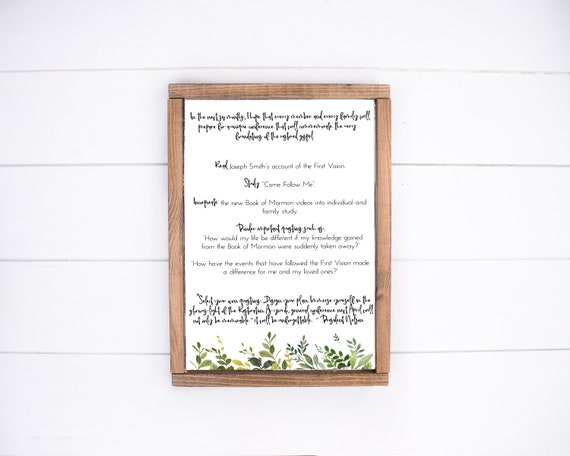 In the next six months, I hope that every member and every family will
prepare for a unique conference that will commemorate the very
foundations of the restored gospel.
Read Joseph Smith's account of the First Vision.
Study "Come Follow Me".
Incorporate the new Book of Mormon videos into individual and
family study.
Ponder important questions such as:
"How would my life be different if my knowledge gained
from the Book of Mormon were suddenly taken away?"
"How have the events that have followed the First Vision made
a difference for me and my loved ones?"
"Select your own questions. Design your plan. Immerse yourself in the
glorious light of the Restoration. As you do, general conference next April will
not only be memorable - it will be unforgettable." - President Nelson